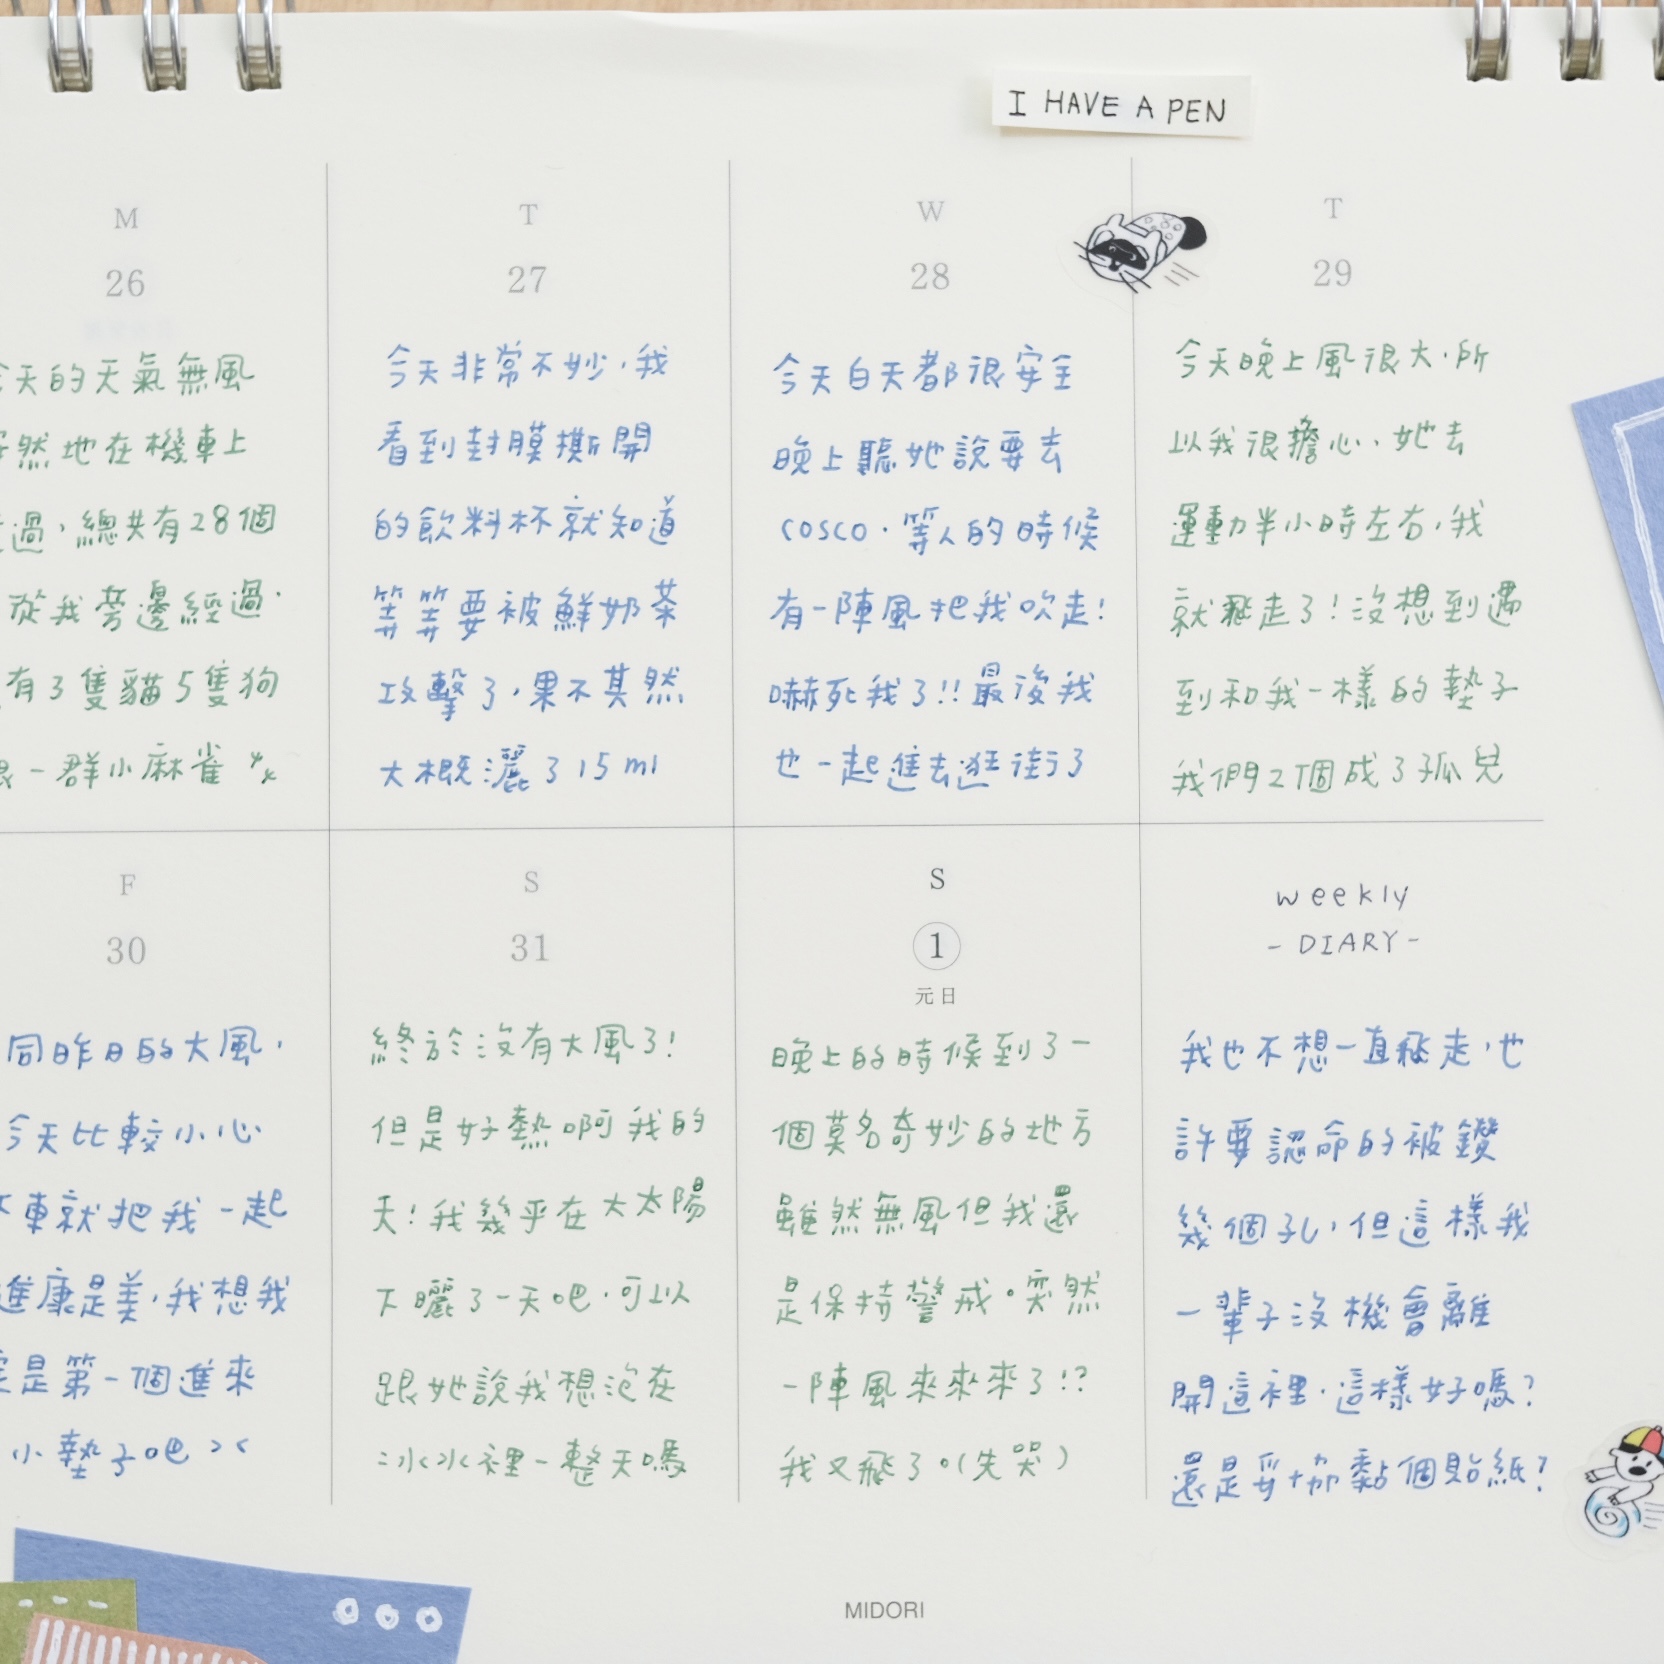 I HAVE A PEN
M
26
天的天氣無風
然地在機車上
過，總共有28個
從我旁邊經過.
有3隻貓5隻狗
一群小麻雀
T
27
今天非常不妙，我
看到封膜撕開
的飲料杯就知道
等等要被鮮奶茶
攻擊了，果不其然
大概灑了15ml
W
28
今天白天都很安全
晚上聽她說要去
COSCO．等人的時候
有一陣風把我吹走!
嚇死我了!!最後我
也一起進去逛街了
T
29
今天晚上風很大.所
以我很擔心、她去
運動半小時左右，我
就飛走了!沒想到遇
到和我一樣的墊子
我們2個成了孤兒
F
30
同昨日的大風，
今天比較小心
車就把我一起
進康是美，我想我
是第一個進來
小墊子吧 ><
S
31
終於沒有大風了!
但是好熱啊我的
天!我幾乎在大太陽
下曬了一天吧.可以
跟她說我想泡在
冰水裡一整天嗎
S
1
元日
晚上的時候到了一
個莫名奇妙的地方
雖然無風但我還
是保持警戒。突然
一陣風來來來了!?
我又飛了。(失哭)
weekly
-DIARY-
我也不想一直飛走，也
許要認命的被鑽
幾個孔，但這樣我
一輩子沒機會離
開這裡．這樣好嗎?
還是妥協黏個貼紙?
MIDORI